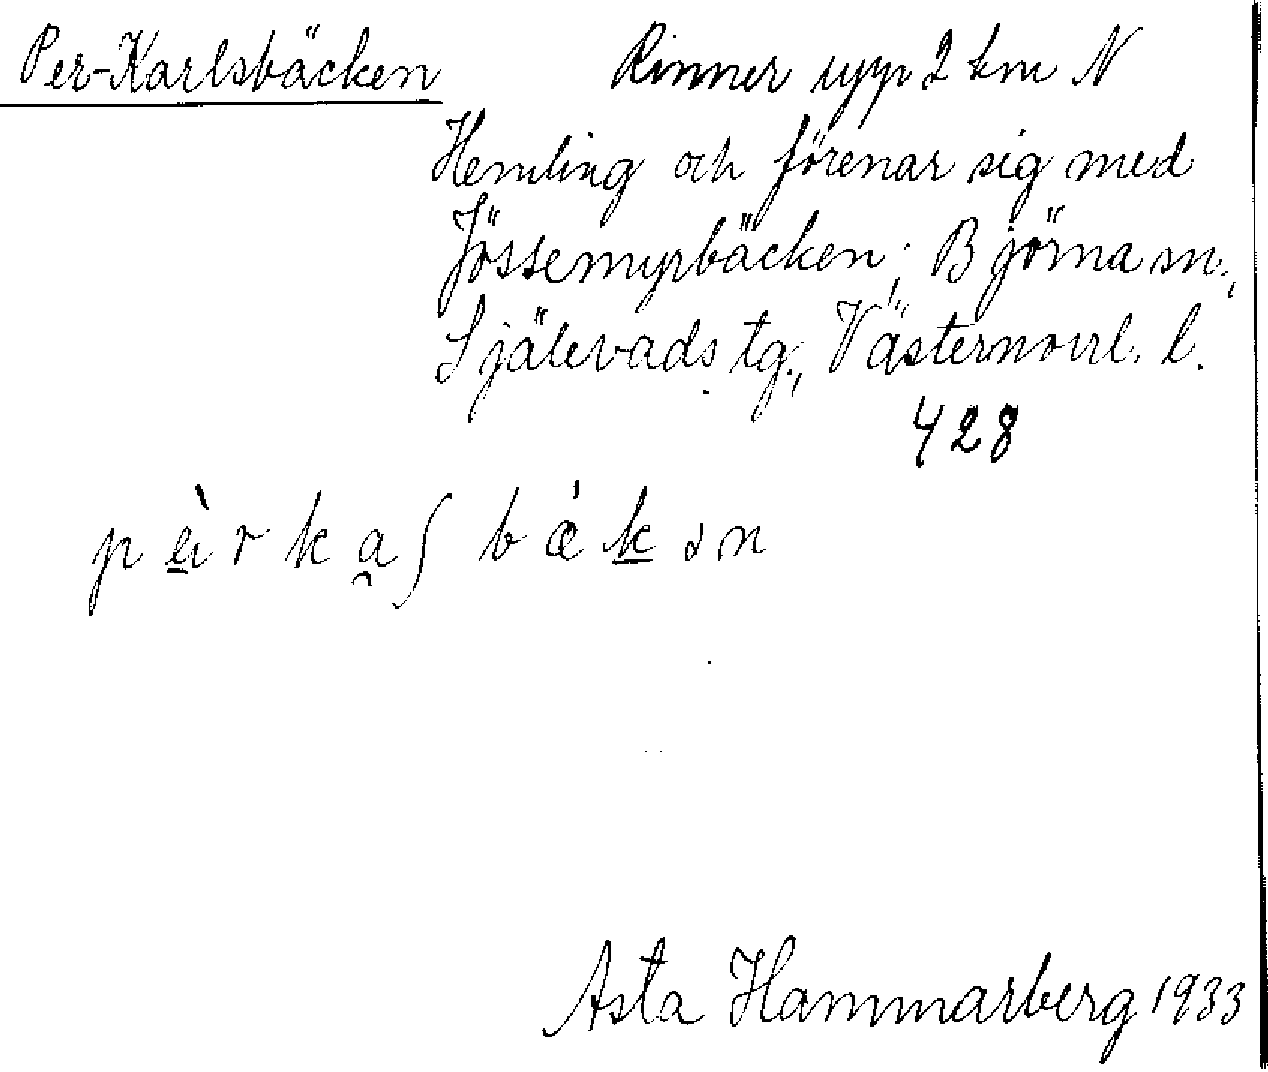 Per-Karlsbäcken Rinner upp 2 km N
Hemling och förenar sig med
Jössemyrbäcken; Björna sn.,
Själevads tg., Västernorrl. l.
428
pèrkaʃbǽkən
Asta Hammarberg 1933